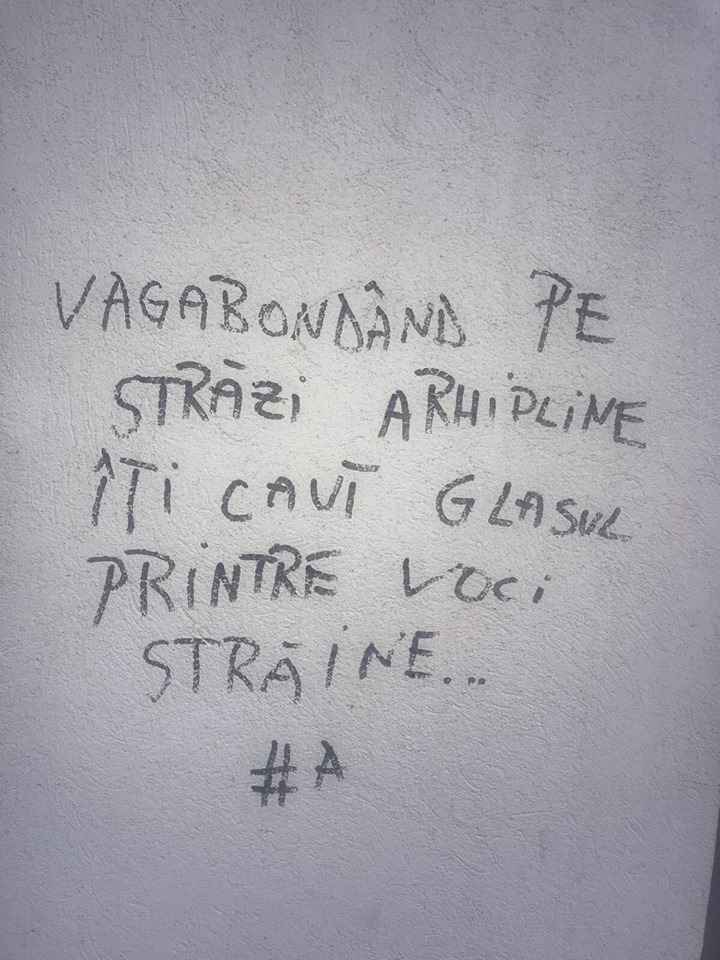 VAGABONDÂND PE
STRĂZI ARHIPLINE
ÎȚI CAUT GLASUL
PRINTRE VOCI
STRĂINE...
#A